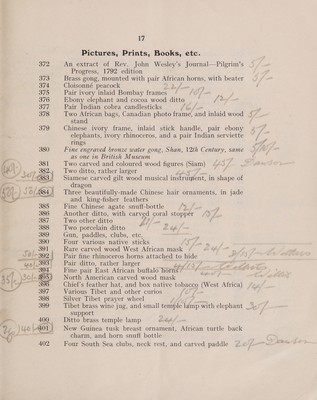 17
Pictures, Prints, Books, etc.
372 An extract of Rev. John Wesley's Journal—Pilgrim's 5/-
Progress, 1792 edition
373 Brass gong, mounted with pair African horns, with beater 5/-
374 Cloisonné peacock 22/-
375 Pair ivory inlaid Bombay frames 10/-
376 Ebony elephant and cocoa wood ditto 12/-
377 Pair Indian cobra candlesticks 16/-
378 Two African bags, Canadian photo frame, and inlaid wood 5/-
stand
379 Chinese ivory frame, inlaid stick handle, pair ebony
elephants, ivory rhinoceros, and a pair Indian serviette
rings
380 Fine engraved bronze water gong, Shan, 12th Century, same
as one in British Museum
381 Two carved and coloured wood figures (Siam) 45/-
382 Two ditto, rather larger 45/-
383 Siamese carved gilt wood musical instrument, in shape of
dragon
384 Three beautifully-made Chinese hair ornaments, in jade
and king-fisher feathers
385 Fine Chinese agate snuff-bottle 12/-
386 Another ditto, with carved coral stopper 15/-
387 Two other ditto
388 Two porcelain ditto 24/-
389 Gun, paddles, clubs, etc.
390 Four various native sticks 15/-
391 Rare carved wood West African mask 24/-
392 Pair fine rhinoceros horns attached to hide
393 Pair ditto, rather larger
394 Fine pair East African buffalo horns
395 North American carved wood mask
396 Chief's feather hat, and box native tobacco (West Africa) 14/-
397 Various Tibet and other curios
398 Silver Tibet prayer wheel
399 Tibet brass wine jug, and small temple lamp with elephant 30/-
support
400 Ditto brass temple lamp 24/-
401 New Guinea tusk breast ornament, African turtle back
charm, and horn snuff bottle
402 Four South Sea clubs, neck rest, and carved paddle 20/-